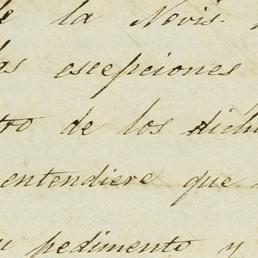 de la Novis.
as escepciones
tro de los dichos
entendiere que
u pedimento y